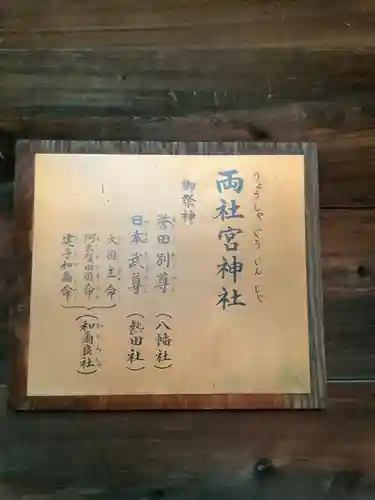 両社宮神社
りょうしゃぐうじんじゃ
御祭神
誉田別尊（八幡社）
日本武尊（熱田社）
大国主命
阿太賀田須命
建手和爾命
（和爾良社）